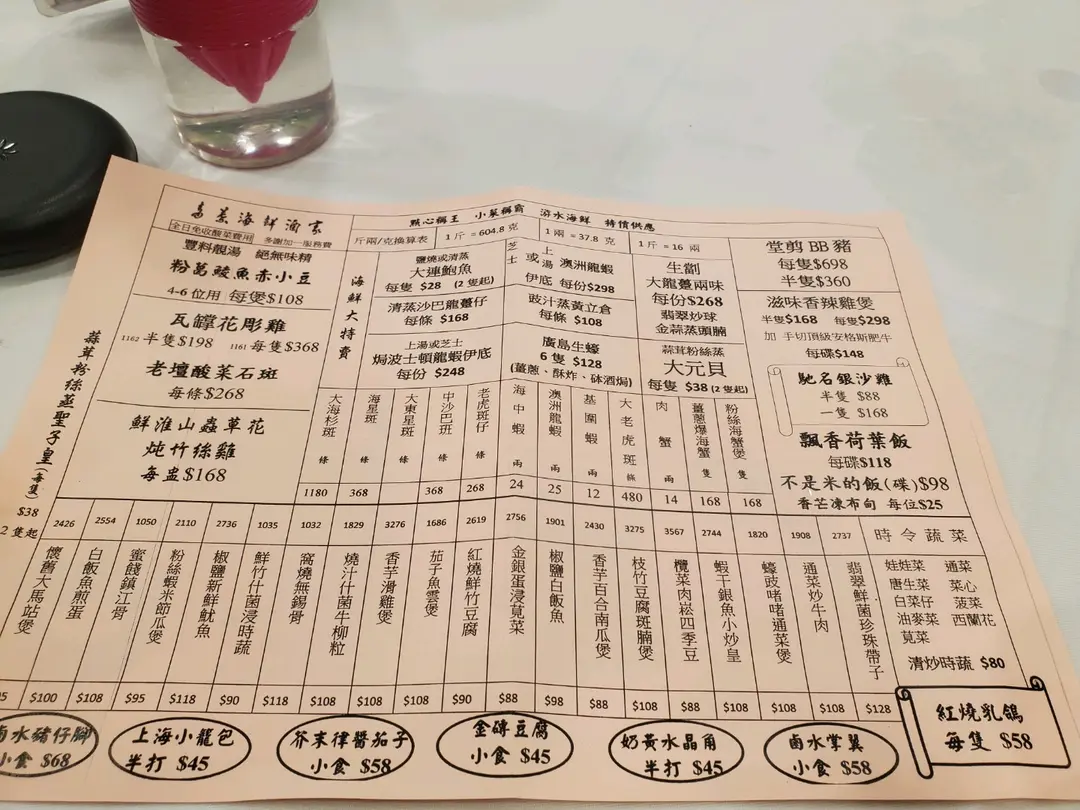 海鮮酒家
全日免收酸菜費用 多謝加一服務費
點心稱王 小菜稱霸 游水海鮮 特價供應
斤兩/克換算表 1 斤 = 604.8 克 1 兩 = 37.8 克 1 斤 = 16 兩
豐料靚湯 絕無味精
粉葛鯪魚赤小豆
4-6 位用 每煲$108
瓦罉花彫雞
1162 半隻$198 1161 每隻$368
老壇酸菜石斑
每條$268
鮮淮山蟲草花
炖竹絲雞
每盅$168
蒜茸粉絲蒸聖子皇(每隻)
$38
2 隻起
海鮮大特賣
鹽燒或清蒸
大連鮑魚
每隻 $28 (2 隻起)
清蒸沙巴龍躉仔
每條 $168
上湯或芝士
焗波士頓龍蝦伊底
每份 $248
芝士或上湯 澳洲龍蝦
伊底 每份$298
豉汁蒸黃立倉
每條 $108
廣島生蠔
6 隻 $128
(薑蔥、酥炸、砵酒焗)
生劏
大龍躉兩味
每份$268
翡翠炒球
金蒜蒸頭腩
蒜茸粉絲蒸
大元貝
每隻 $38 (2 隻起)
堂剪 BB 豬
每隻$698
半隻$360
滋味香辣雞煲
半隻$168 每隻$298
加 手切頂級安格斯肥牛
每碟$148
馳名銀沙雞
半隻 $88
一隻 $168
飄香荷葉飯
每碟$118
不是米的飯(碟)$98
香芒凍布甸 每位$25
大海杉斑 條 1180
海星斑 條 368
大東星斑 條
中沙巴斑 條 368
老虎斑仔 條 268
海中蝦 兩 24
澳洲龍蝦 兩 25
基圍蝦 兩 12
大老虎斑 條 480
肉蟹 兩 14
薑蔥爆海蟹 隻 168
粉絲海蟹煲 隻 168
2426 2554 1050 2110 2736 1035 1032 1829 3276 1686 2619 2756 1901 2430 3275 3567 2744 1820 1908 2737
懷舊大馬站煲
白飯魚煎蛋
蜜餞鎮江骨
粉絲蝦米節瓜煲
椒鹽新鮮魷魚
鮮竹什菌浸時蔬
窩燒無錫骨
燒汁什菌牛柳粒
香芋滑雞煲
茄子魚雲煲
紅燒鮮竹豆腐
金銀蛋浸莧菜
椒鹽白飯魚
香芋百合南瓜煲
枝竹豆腐斑腩煲
欖菜肉崧四季豆
蝦干銀魚小炒皇
蠔豉啫啫通菜煲
通菜炒牛肉
翡翠鮮菌珍珠帶子
5 $100 $108 $95 $118 $90 $118 $108 $108 $108 $90 $88 $98 $88 $108 $88 $108 $108 $108 $128
時令蔬菜
娃娃菜 通菜
唐生菜 菜心
白菜仔 菠菜
油麥菜 西蘭花
莧菜
清炒時蔬 $80
鹵水豬仔腳
小食 $68
上海小籠包
半打 $45
芥末律醬茄子
小食 $58
金磚豆腐
小食 $45
奶黃水晶角
半打 $45
鹵水掌翼
小食 $58
紅燒乳鴿
每隻 $58